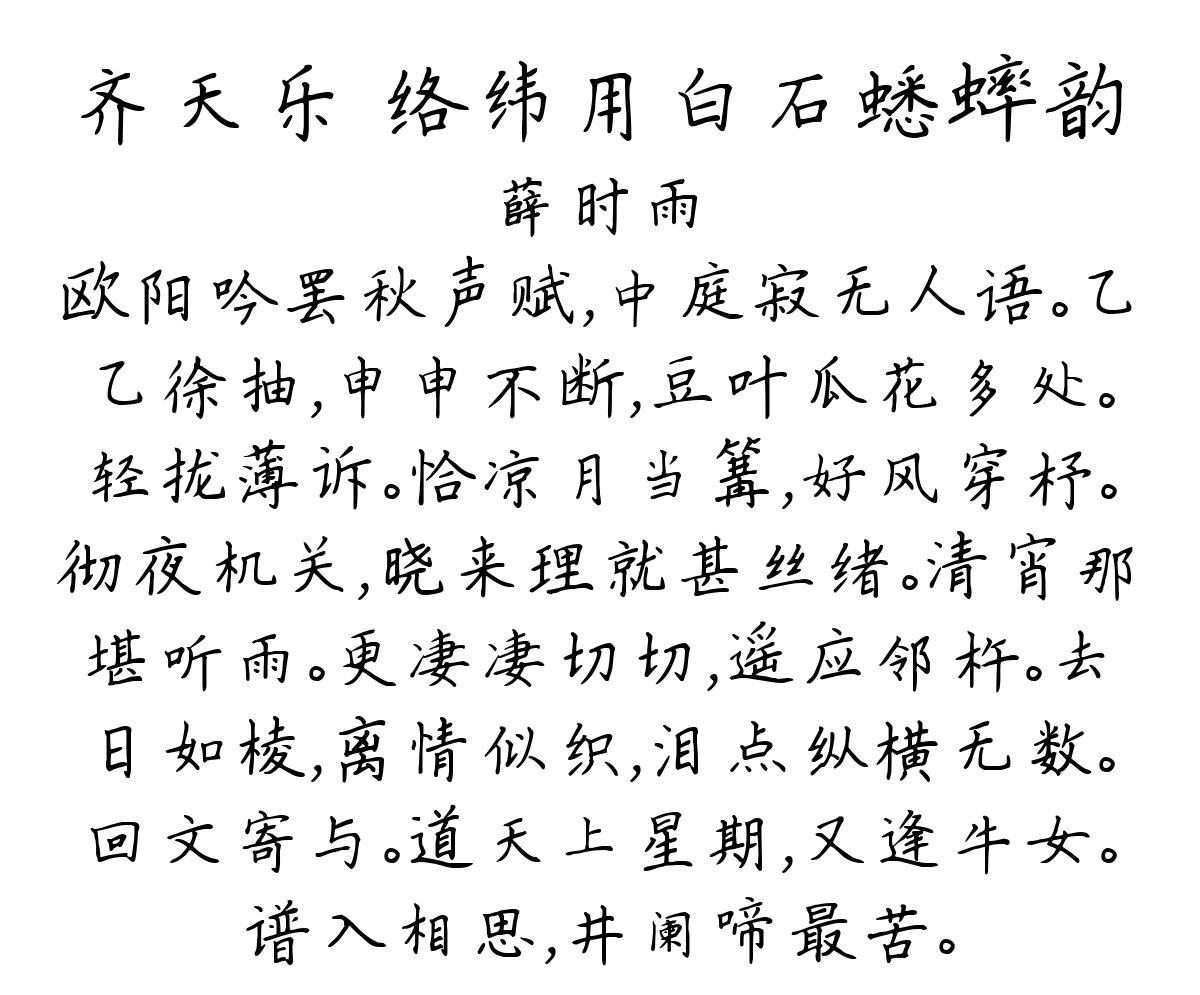 齐天乐 络纬用白石蟋蟀韵
薛时雨
欧阳吟罢秋声赋,中庭寂无人语。乙
乙徐抽,申申不断,豆叶瓜花多处。
轻拢薄诉。恰凉月当篝,好风穿杼。
彻夜机关,晓来理就甚丝绪。清宵那
堪听雨。更凄凄切切,遥应邻杵。去
日如棱,离情似织,泪点纵横无数。
回文寄与。道天上星期,又逢牛女。
谱入相思,井阑啼最苦。